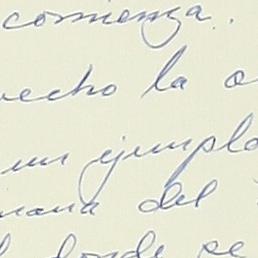 comienza.
echo la
un ejemplo
mana del
donde se